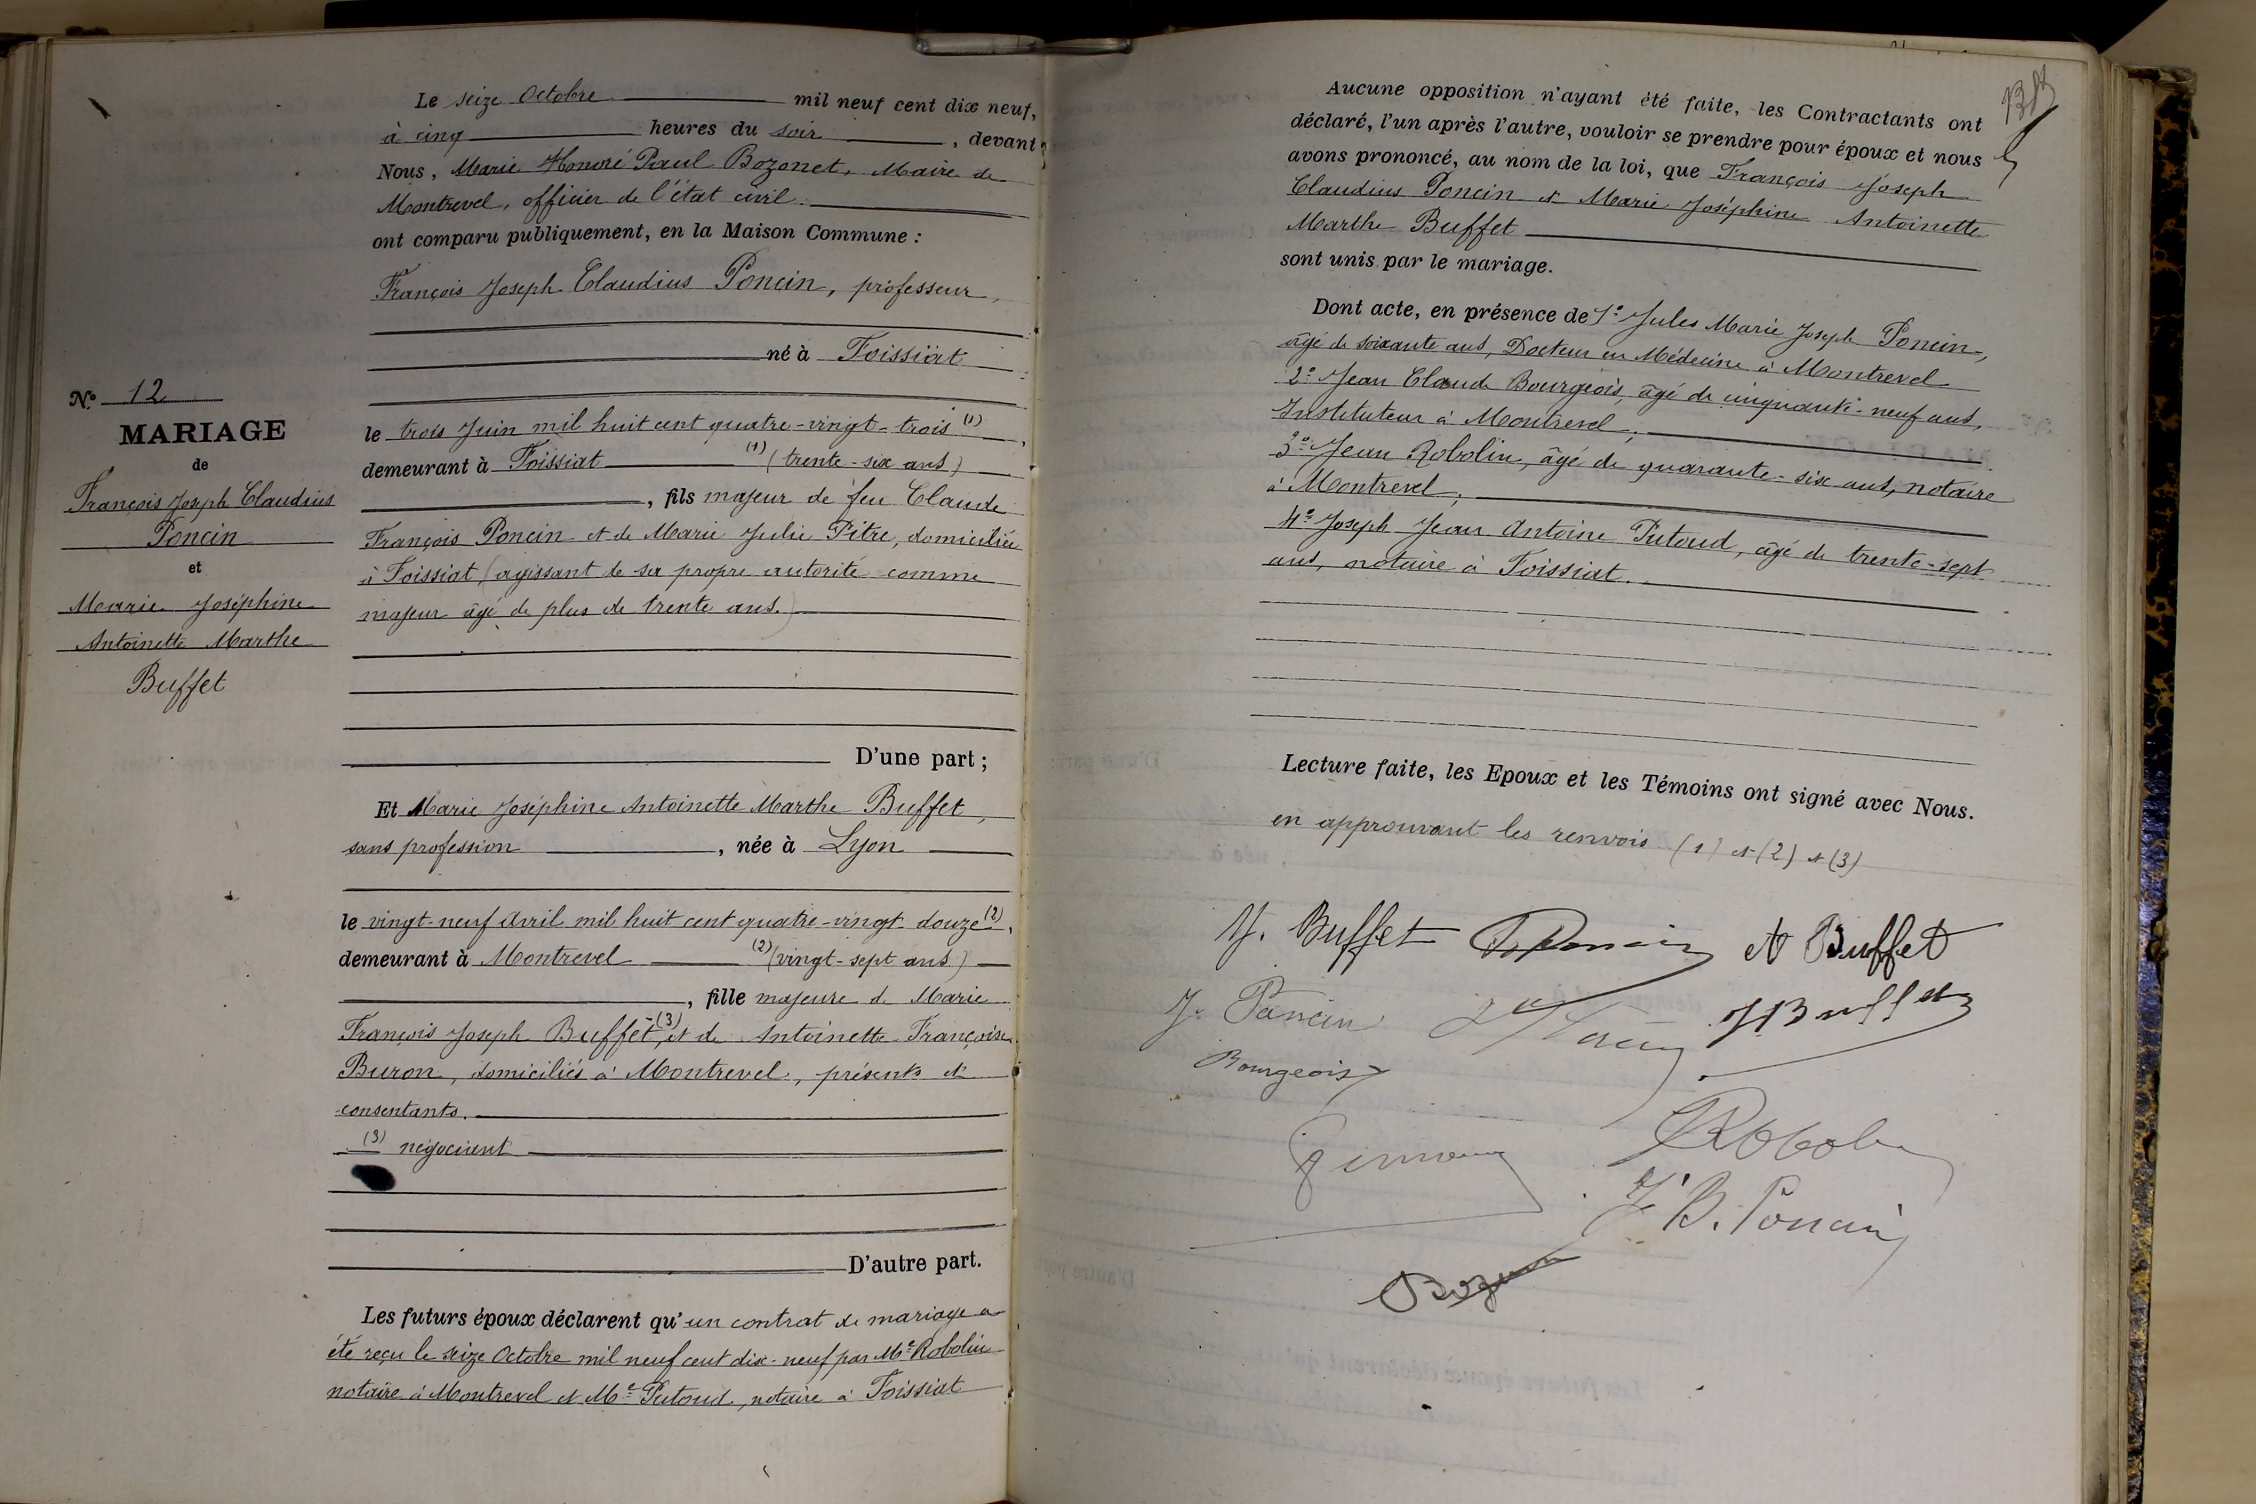 Le seize Octobre mil neuf cent dix neuf,
à cinq heures du soir, devant
Nous, Marie Honoré Paul Bozonet, Maire de
Montrevel, officier de l'état civil.
ont comparu publiquement, en la Maison Commune :
François Joseph Claudius Poncin, professeur,
né à Foissiat
le trois Juin mil huit cent quatre-vingt-trois (1),
demeurant à Foissiat (1) (trente-six ans)
, fils majeur de feu Claude
François Poncin et de Marie Julie Pitre, domiciliée
à Foissiat (agissant de sa propre autorité comme
majeur âgé de plus de trente ans.)
D'une part ;
Et Marie Joséphine Antoinette Marthe Buffet,
sans profession, née à Lyon
le vingt-neuf Avril mil huit cent quatre-vingt douze (2),
demeurant à Montrevel (2) (vingt-sept ans)
, fille majeure de Marie
François Joseph Buffet (3) et de Antoinette Françoise
Buron, domiciliés à Montrevel, présents et
consentants.
(3) négociant
D'autre part.
Les futurs époux déclarent qu'un contrat de mariage a
été reçu le seize Octobre mil neuf cent dix-neuf par Me Robolin
notaire à Montrevel et Me Putoud, notaire à Foissiat
No. 12
MARIAGE
de
François Joseph Claudius
Poncin
et
Marie Joséphine
Antoinette Marthe
Buffet
Aucune opposition n'ayant été faite, les Contractants ont
déclaré, l'un après l'autre, vouloir se prendre pour époux et nous
avons prononcé, au nom de la loi, que François Joseph
Claudius Poncin et Marie Joséphine Antoinette
Marthe Buffet
sont unis par le mariage.
Dont acte, en présence de 1° Jules Marie Joseph Poncin,
âgé de soixante ans, Docteur en Médecine à Montrevel
2° Jean Claude Bourgeois, âgé de cinquante-neuf ans,
Instituteur à Montrevel ;
3° Jean Robolin, âgé de quarante-six ans, notaire
à Montrevel ;
4° Joseph Jean Antoine Putoud, âgé de trente-sept
ans, notaire à Foissiat.
Lecture faite, les Epoux et les Témoins ont signé avec Nous.
en approuvant les renvois (1) et (2) et (3)
M. Buffet Poncin A Buffet
J. Poncin J Buffet
Bourgeois
Robolin
J. B. Poncin
Bozonet